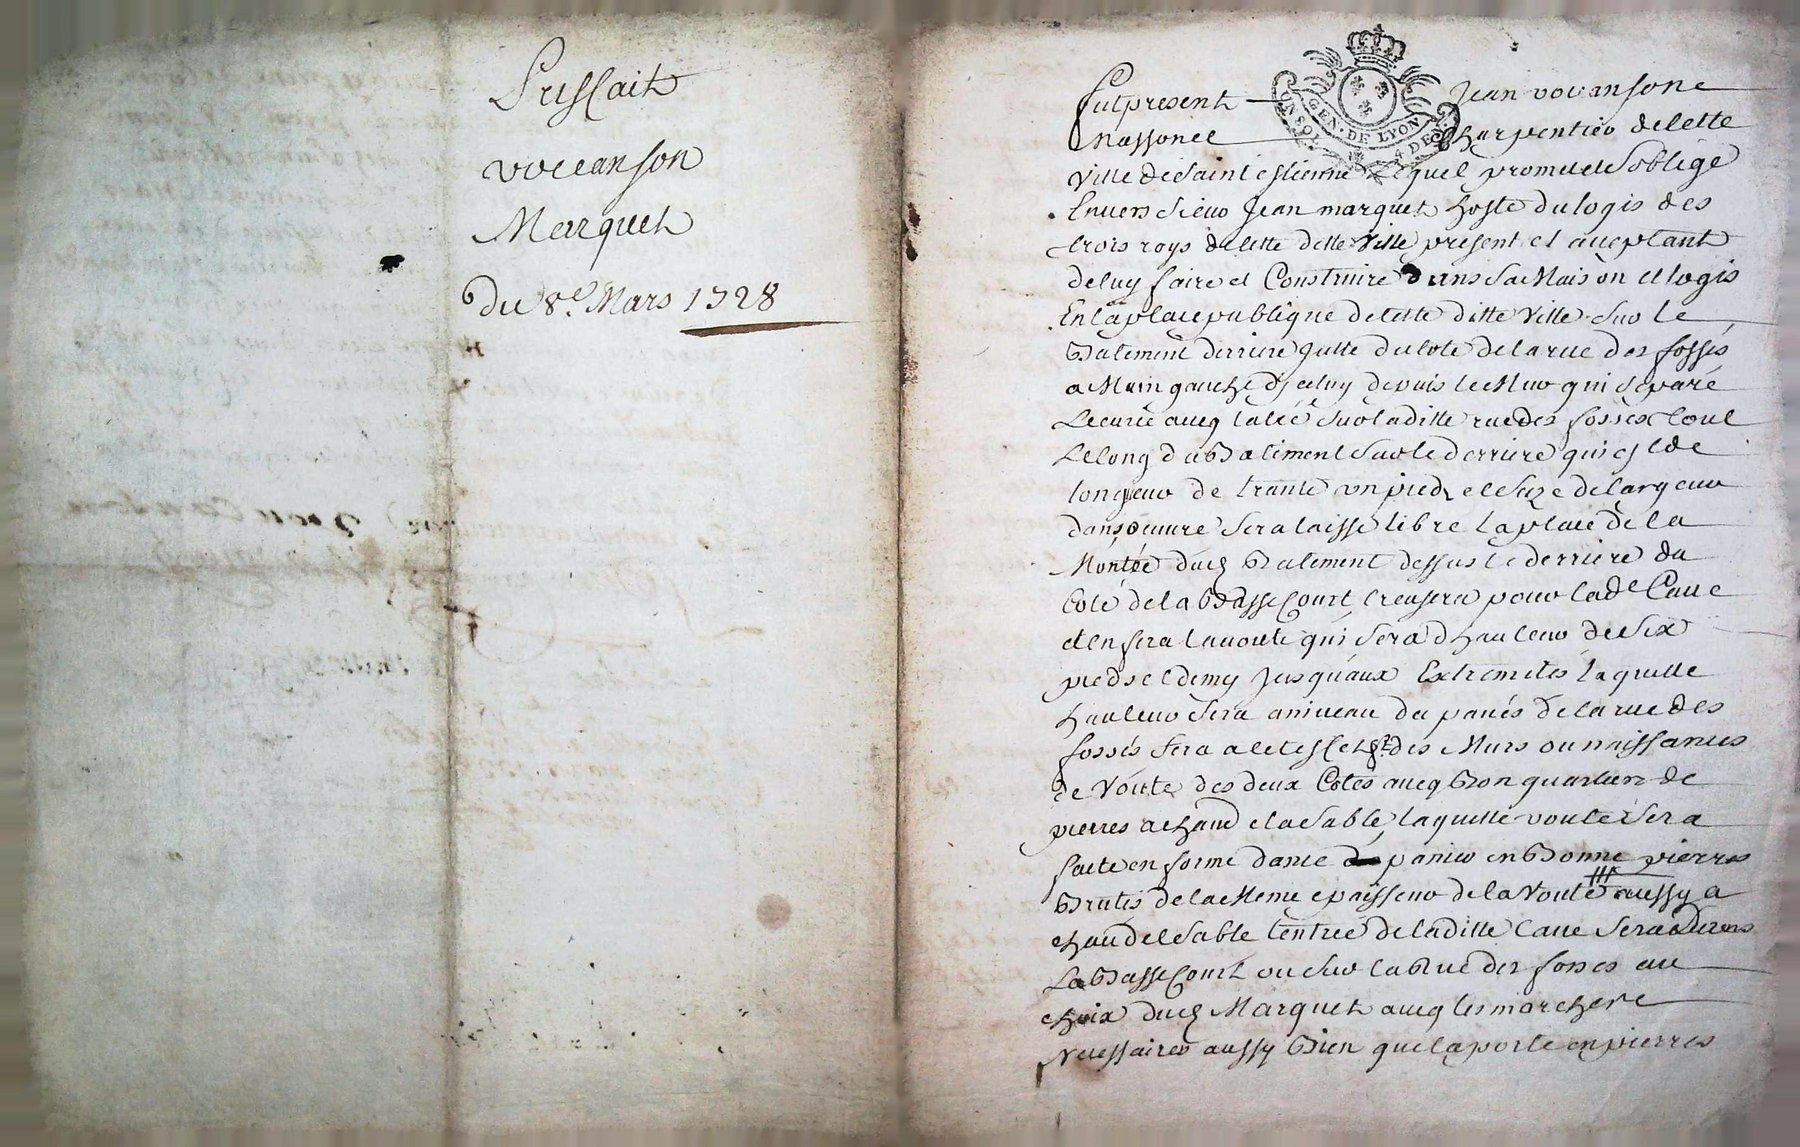 Prisfait
vocanson
Marquet
du 8e. Mars 1728
GEN. DE LYON
Fut present Jean vocansone
Massonet Charpentier de cette
ville de Saint estienne Lequel promet et Soblige
Envers Sieur Jean marquet hoste du logis des
trois roys de cette ditte ville present et acceptant
de luy faire et Construire dans Sa Maison et logis
En la place publique de cette ditte ville Sur le
Batiment derriere du cote de la rue des fossés
a Main gauche diceluy depuis le Mur qui Separe
Lecurie avecq Sur laditte rue des fossés tout
Le long du Batiment Sur le derriere qui est de
longueur de trante un pieds et Seize de largeur
dans oeuvre Sera laisse libre La place de la
Montée dud Batiment dessus le derriere du
Coté de la Basse Court creusera pour lade Cave
et en fera la voute qui Sera dhauteur de Six
pieds et demy Jusquaux Extremites laquelle
hauteur Sera a niveau du pavés de la rue des
fossés fera a cet des Murs ou naissances
de Voute des deux Cotés avecq Bon quartiers de
pierres a chaud et a Sable laquelle voute Sera
faite en forme danse panier en Bonne pierres
Brutes de la Meme epaisseur de la Voute aussy a
chau de et Sable lentrée de laditte Cave Sera dans
La Basse Court ou Sur la Rue des fossés au
choix dud Marquet avecq les marches
Necessaires aussy Bien que la porte en pierres